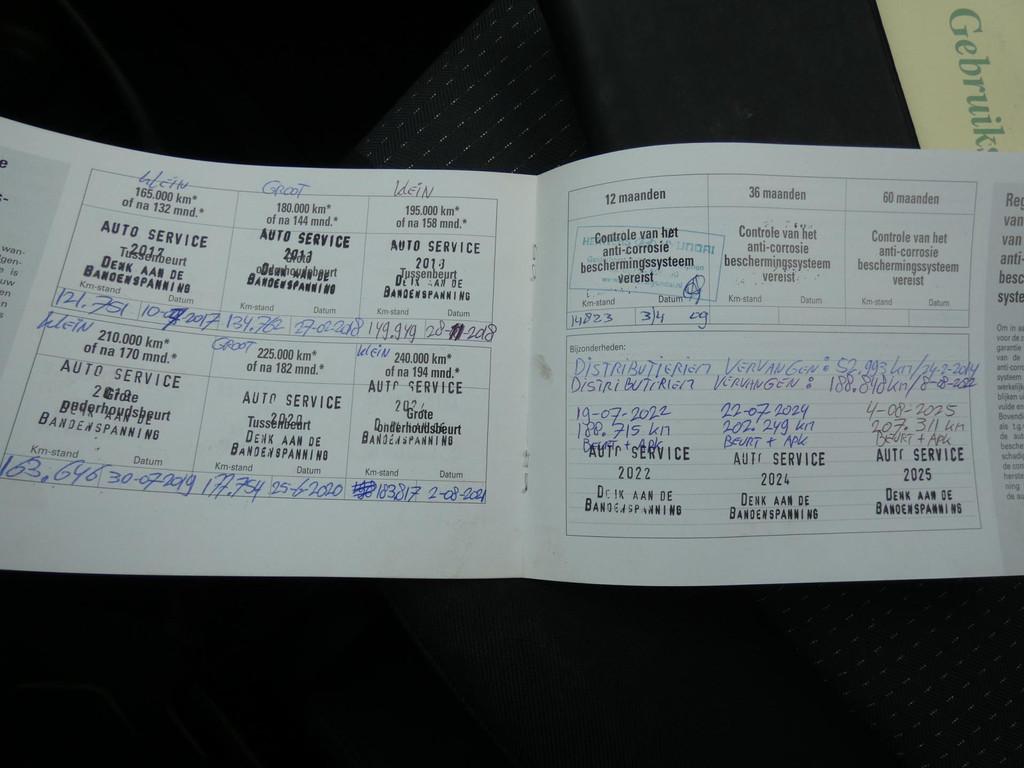 Gebruik
KLEIN
165.000 km*
of na 132 mnd.*
AUTO SERVICE
2017
Tussenbeurt
DENK AAN DE
BANDENSPANNING
Km-stand Datum
121.751 10-07-2017
GROOT
180.000 km*
of na 144 mnd.*
AUTO SERVICE
Grote
onderhoudsbeurt
DENK AAN DE
BANDENSPANNING
Km-stand Datum
134.762 27-02-2018
KLEIN
195.000 km*
of na 158 mnd.*
AUTO SERVICE
2018
Tussenbeurt
DENK AAN DE
BANDENSPANNING
Km-stand Datum
149.949 28-11-2018
KLEIN
210.000 km*
of na 170 mnd.*
AUTO SERVICE
Grote
onderhoudsbeurt
DENK AAN DE
BANDENSPANNING
Km-stand Datum
163.646 30-07-2019
GROOT
225.000 km*
of na 182 mnd.*
AUTO SERVICE
2020
Tussenbeurt
DENK AAN DE
BANDENSPANNING
Km-stand Datum
177.754 25-6-2020
KLEIN
240.000 km*
of na 194 mnd.*
AUTO SERVICE
Grote
onderhoudsbeurt
DENK AAN DE
BANDENSPANNING
Km-stand Datum
183817 2-08-2021
12 maanden 36 maanden 60 maanden
Controle van het
anti-corrosie
beschermingssysteem
vereist
Km-stand Datum
14823 3/4 09
Controle van het
anti-corrosie
beschermingssysteem
vereist
Km-stand Datum
Controle van het
anti-corrosie
beschermingssysteem
vereist
Km-stand Datum
Bijzonderheden:
DISTRIBUTIERIEM VERVANGEN: 52.993 km/24-2-2014
DISTRIBUTIRIEM VERVANGEN: 188.848 km/8-08-2022
19-07-2022
188.715 km
BEURT + APK
AUTO SERVICE
2022
DENK AAN DE
BANDENSPANNING
22-07-2024
202.249 km
BEURT + APK
AUTO SERVICE
2024
DENK AAN DE
BANDENSPANNING
4-08-2025
207.311 km
BEURT + APK
AUTO SERVICE
2025
DENK AAN DE
BANDENSPANNING